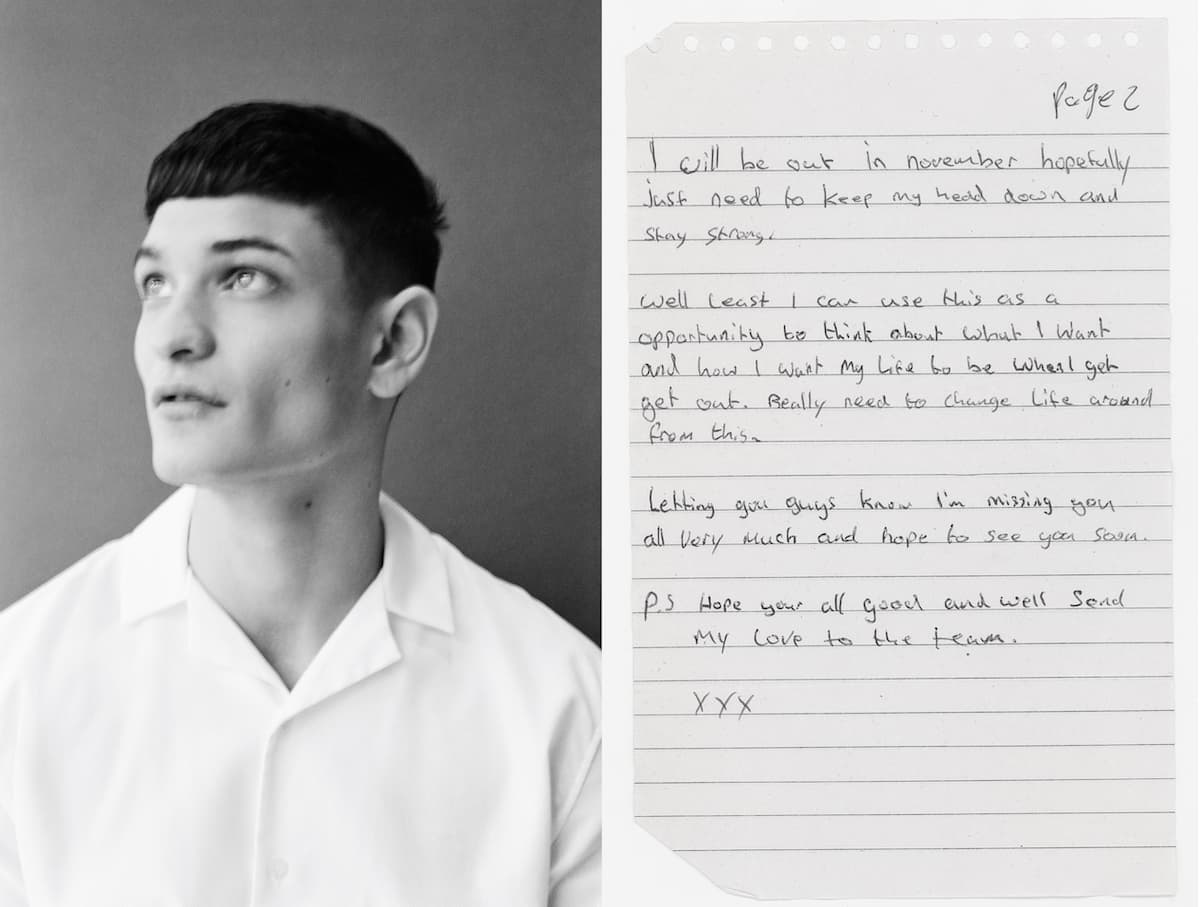 Page 2
I will be out in november hopefully
just need to keep my head down and
stay strong.
Well least I can use this as a
opportunity to think about what I want
and how I want my life to be when I get
get out. Really need to change life around
from this.
Letting you guys know I'm missing you
all very much and hope to see you soon.
P.S Hope your all good and well Send
My love to the team.
XXX